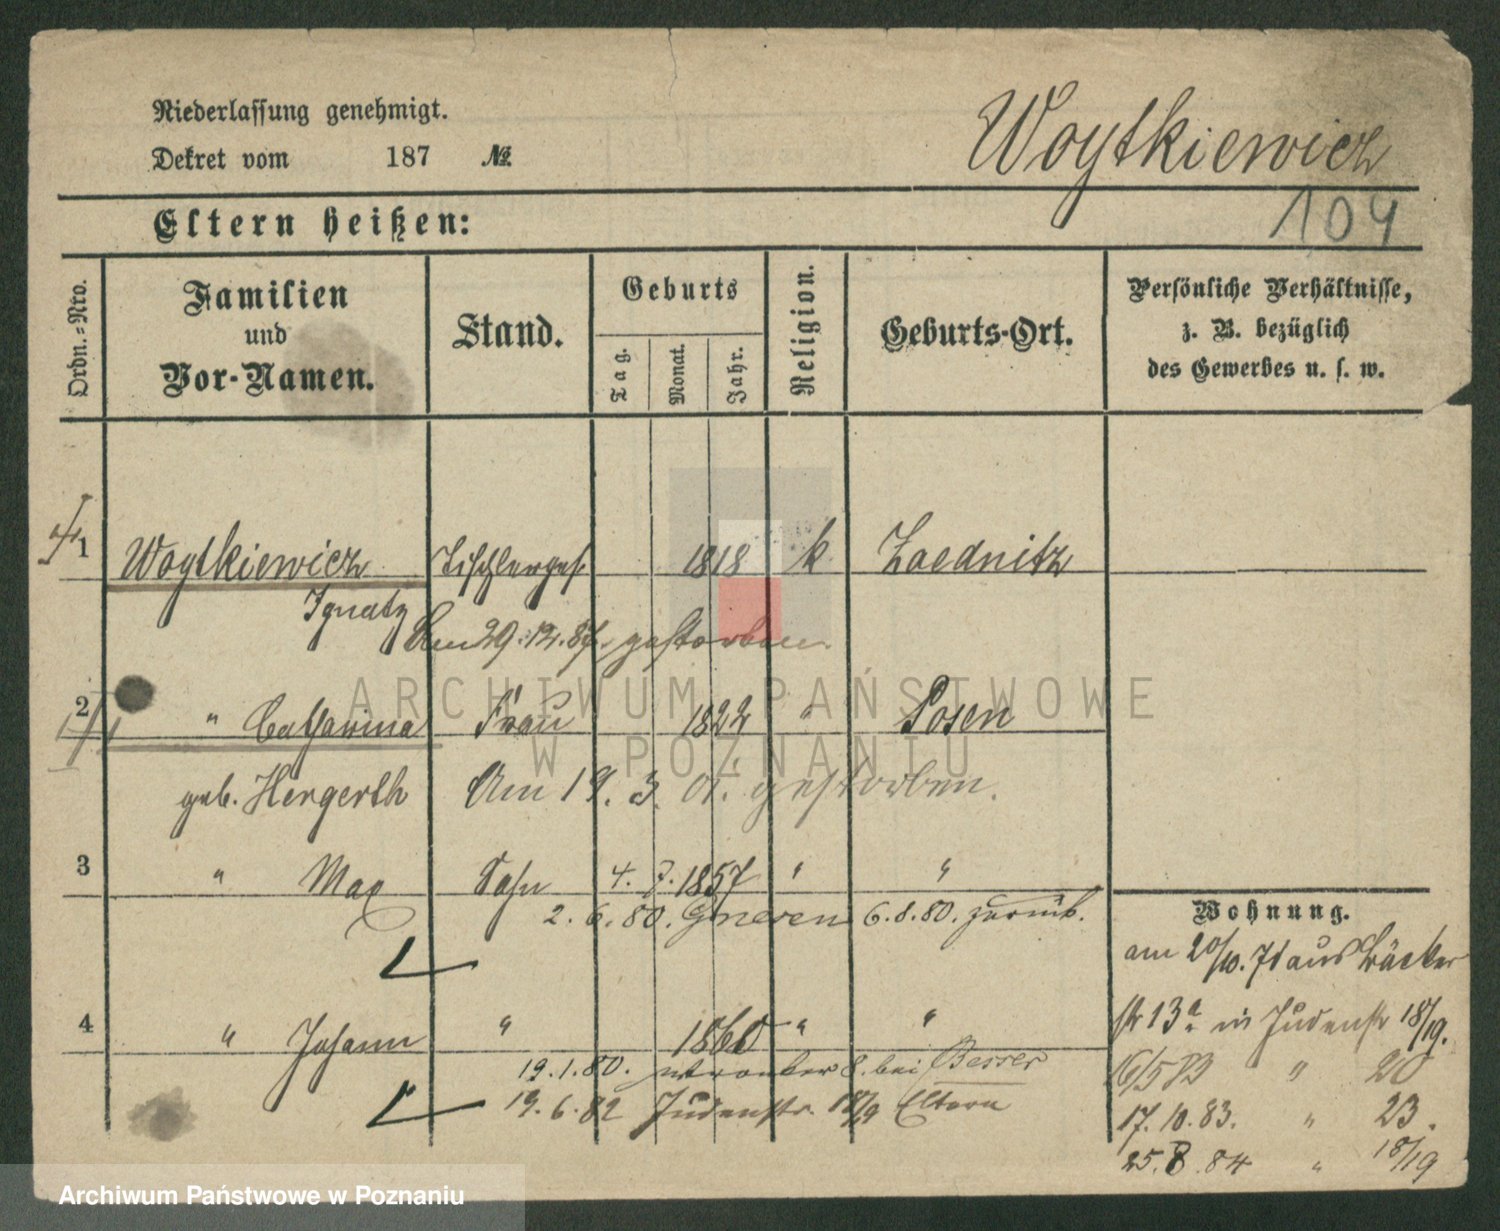 Niederlassung genehmigt.
Dekret vom 187 №
Woytkiewicz
104
Eltern heißen:
Ordn.-Nro.
Familien
und
Vor-Namen.
Stand.
Geburts
Tag.
Monat.
Jahr.
Religion.
Geburts-Ort.
Persönliche Verhältnisse,
z. B. bezüglich
des Gewerbes u. s. w.
1 Woytkiewicz Tischlerges. 1818 k
Ignatz
Am 29.12.87. gestorben.
2 " Catharina Frau 1822 " Posen
geb. Hergerth Am 19. 3. 01. gestorben.
3 " Max Sohn 4. 7. 1857 " "
2. 6. 80. Gnesen 6. 8. 80. zurück.
Wohnung.
am 20/10. 71 aus Bäcker
str 13a in Judenstr 18/19.
4 " Johann " 1860 " "
19. 1. 80. Wronker 8. bei Besser
16/5 83 " 20
19. 6. 82 Judenstr. 18/19 Eltern
17. 10. 83. " 23.
25. 8. 84 " 18/19
ARCHIWUM PAŃSTWOWE
W POZNANIU
Archiwum Państwowe w Poznaniu